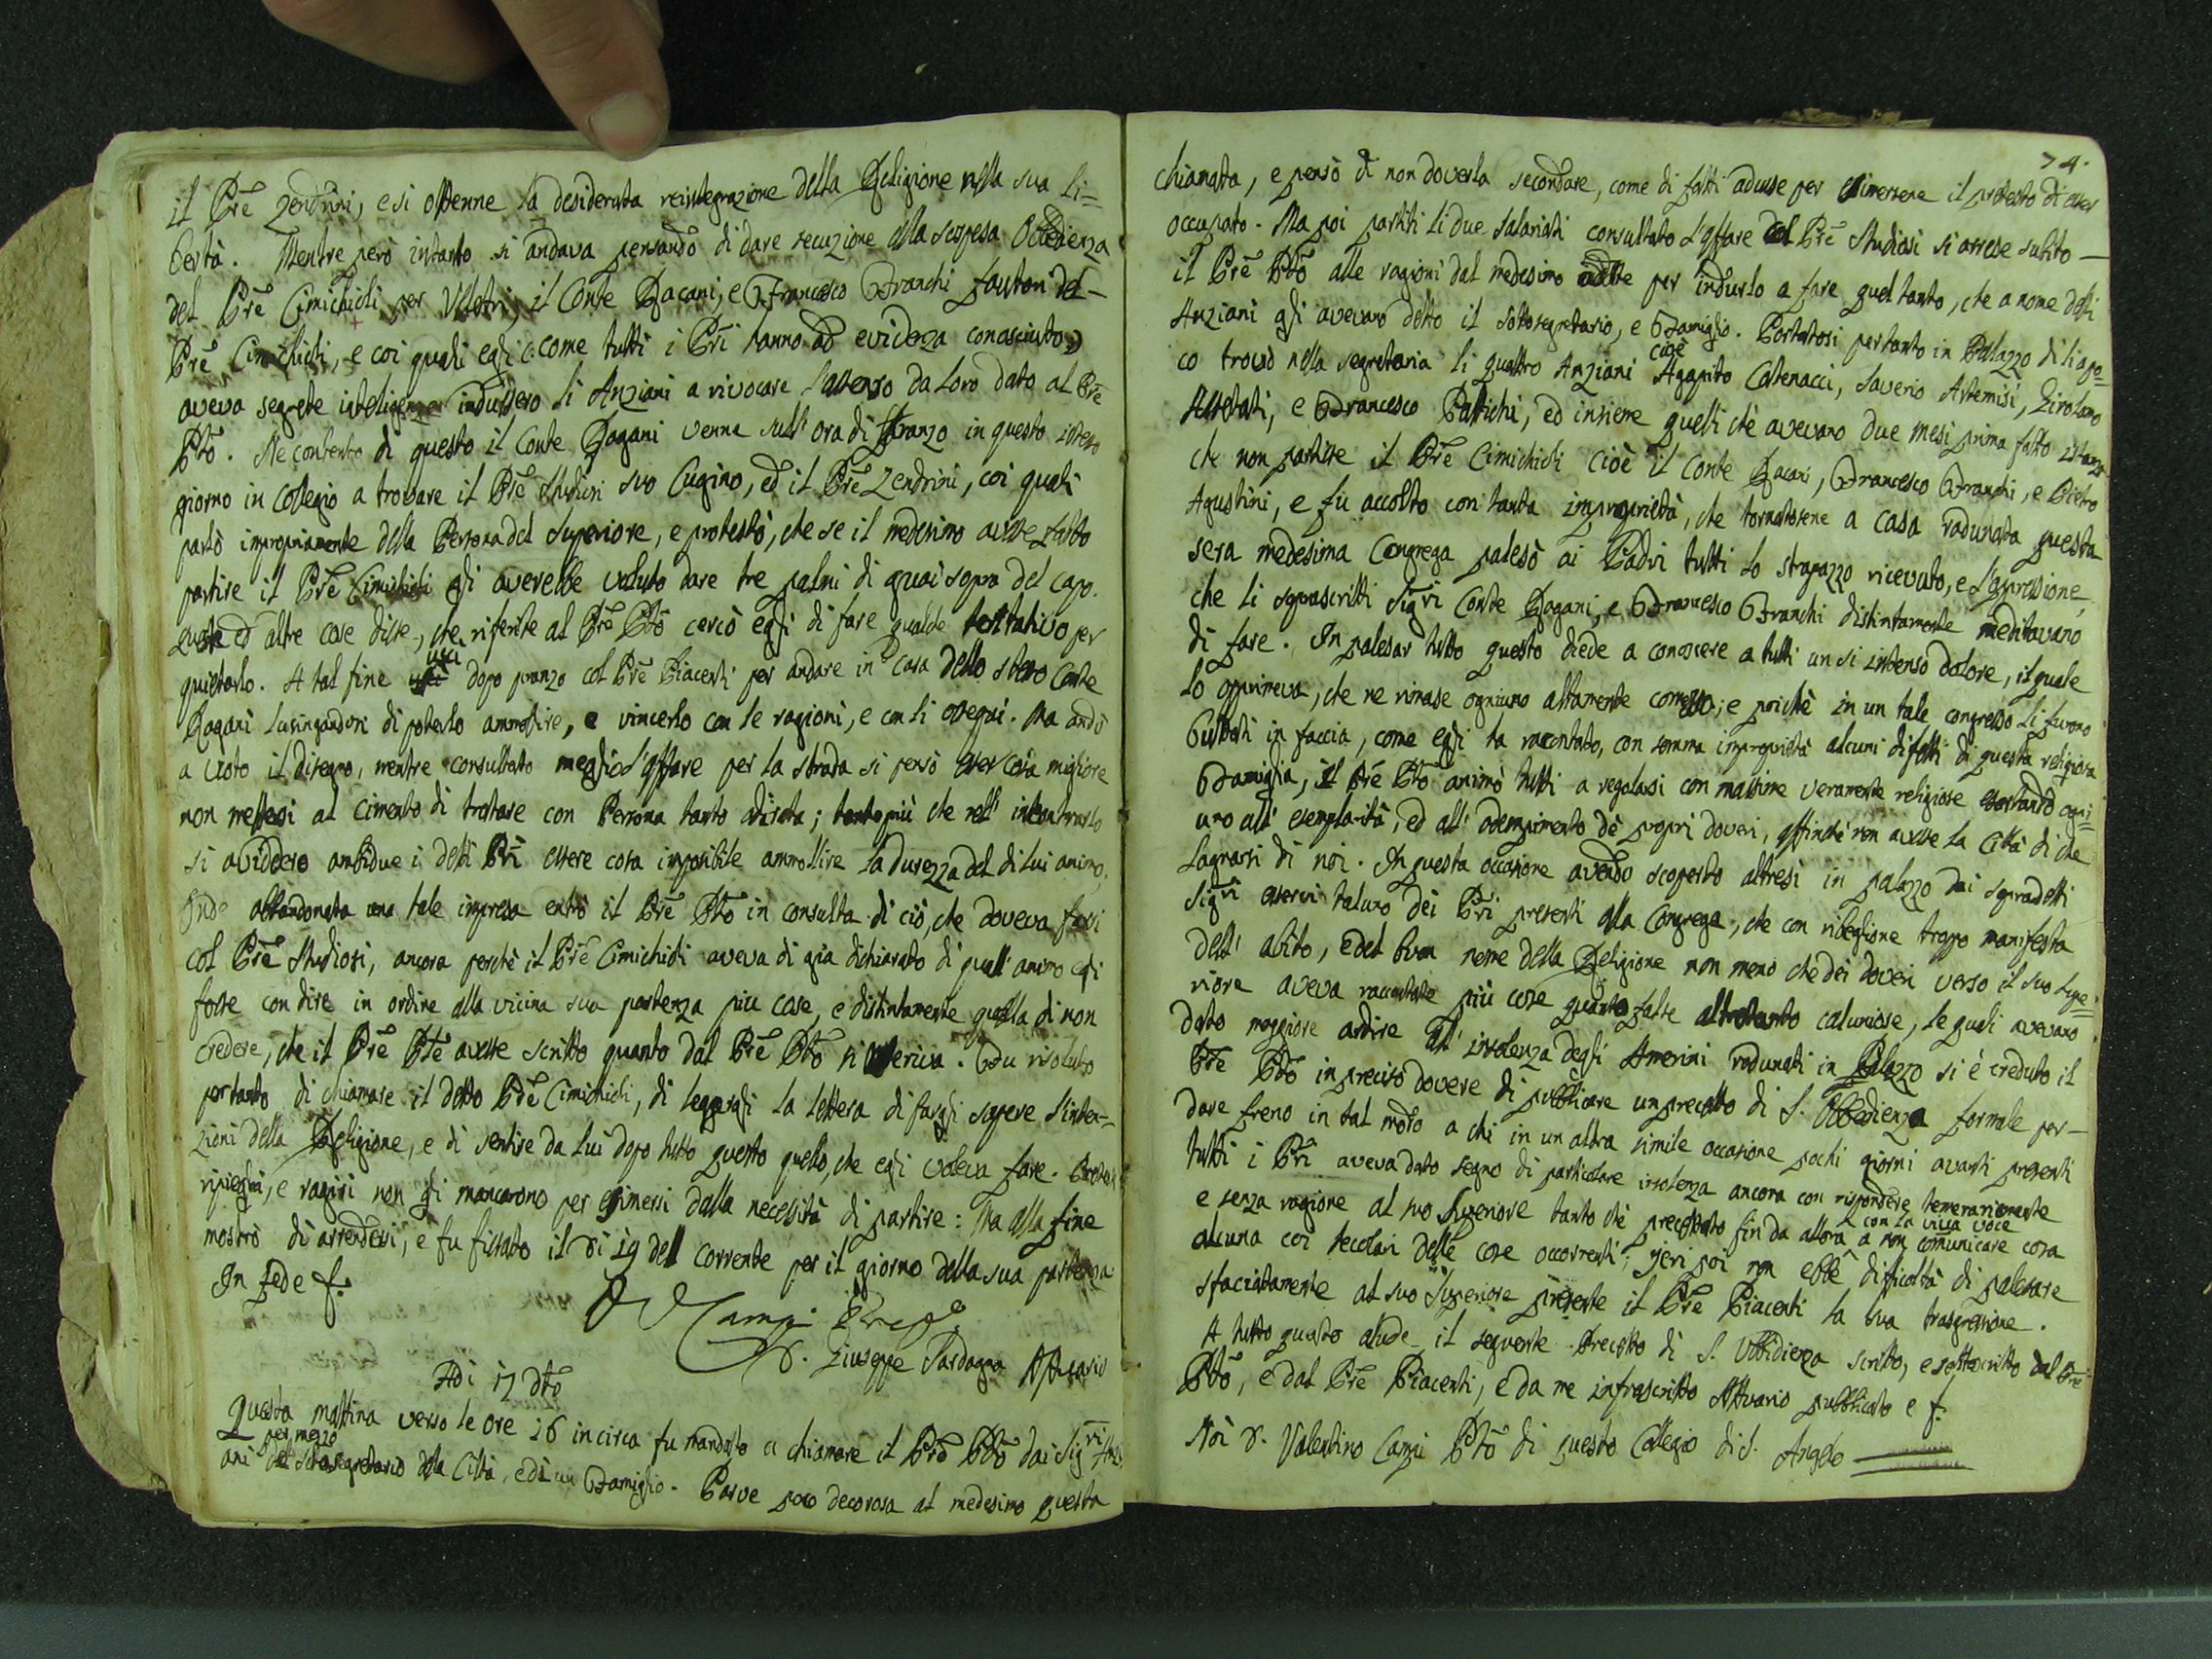 il Prē Zendrini, e si ottenne la desiderata reintegrazione della Religione nella sua li=
bertà. Mentre però intanto si andava pensando di dare secuzione alla sospesa Obbedienza
del Prē Cimichioli per Velletri, il Conte Racani, e Francesco Franchi fautori del-
Prē Cimichioli, e coi quali egli (: come tutti i Pri hanno ad evidenza conosciuto:)
aveva segrete inteligenze indussero li Anziani a rivocare l'assenso da loro dato al Prē
Ptō. Ne contento di questo il Conte Racani venne sull' ora di Pranzo in questo istesso
giorno in Collegio a trovare il Prē Studiosi suo Cugino, ed il Prē Zendrini, coi quali
parlò impropriamente della Persona del Superiore, e protestò, che se il medesimo avesse fatto
partire il Prē Cimichioli gli averebbe voluto dare tre palmi di guai sopra del capo.
Queste ed altre cose disse, che riferite al Prē Ptō cercò egli di fare qualche tentativo per
quietarlo. A tal fine uscì dopo pranzo col Prē Piacenti per andare in Casa dello stesso Conte
Racani lusingandosi di poterlo ammollire, e vincerlo con le ragioni, e con li ossequi. Ma andò
a vuoto il disegno, mentre consultato meglio l'affare per la strada si pensò esser cosa migliore
non mettersi al cimento di trattare con Persona tanto adirata; tanto più che nell' incontrarlo
si avviddero ambidue i detti Pri essere cosa imposibile ammollire la durezza del di lui animo.
Onde abbandonata una tale impresa entrò il Prē Ptō in consulta di ciò, che doveva farsi
col Prē Studiosi, ancora perchè il Prē Cimichioli aveva di già dichiarato di quall' animo egli
fosse con dire in ordine alla vicina sua partenza piu cose, e distintamente quella di non
credere, che il Prē Ptē avesse scritto quanto dal Prē Ptō si asseriva. Fu risoluto
pertanto di chiamare il detto Prē Cimichioli, di leggergli la lettera di fargli sapere l'inten-
zioni della Religione, e di sentire da lui dopo tutto questo quello, che egli voleva fare.
ripieghi, e ragiri non gli mancarono per esimersi dalla necessità di partire: Ma alla fine
mostrò di arrendersi, e fu fissato il dì 19 dell corrente per il giorno della sua partenza.
In fede &.
D V Campi Prep.
D. Giuseppe Sardagna Attuario
Adi 17 dto
Questa mattina verso le ore 16 incirca fu mandato a chiamare il Prē Ptō dai Sigri Anzi
ani per mezzo del sottosegretario della Città, e di un Famiglio. Parve poco decorosa al medesimo questa
74.
chiamata, e pensò di non doverla secondare, come di fatti adusse per esimersene il pretesto di esser
occupato. Ma poi partiti li due salariati consultato l'affare col Prē Studiosi si arrese subito —
il Prē Ptō alle ragioni dal medesimo addotte per indurlo a fare quel tanto, che a nome delli
Anziani gli avevano detto il sottosegretario, e Famiglio. Portatosi pertanto in Palazzo di li a po=
co trovò nella segretaria li quattro Anziani cioè Agapito Catenacci, Saverio Artemisi, Girolamo
Assetati, e Francesco Pattichi, ed insieme quelli chè avevano due mesi prima fatto istanza
che non partisse il Prē Cimichioli cioè il Conte Racani, Francesco Franchi, e Pietro
Agustini, e fu accolto con tanta improprietà, che tornatosene a casa radunata questa
sera medesima Congrega palesò ai Padri tutti lo strapazzo ricevuto, e l'oppressione,
che li soprascritti Sigri Conte Racani, e Francesco Franchi distintamente meditavano
di fare. In palesar tutto questo diede a conoscere a tutti un si intenso dolore, il quale
lo opprimeva, che ne rimase ogniuno altamente comosso; e poichè in un tale congresso li furono
buttati in faccia, come egli ha racontato, con somma improprietà alcuni difetti di questa religiosa
Famiglia, il Prē Ptō animò tutti a regolarsi con massime veramente religiose esortando ogni=
uno all' esemplarità, ed all' adempimento dè propri doveri, affinchè non avesse la Città di che
lagnarsi di noi. In questa occasione avendo scoperto altresì in palazzo dai sopradetti
Sigri esservi taluno dei Pri presenti alla Congrega, che con ribeglione troppo manifesta
dell' abito, e del buon nome della Religione non meno che dei doveri verso il suo Supe=
riore aveva raccontate più cose quanto false altrettanto caluniose, le quali avevano
dato maggiore ardire all' insolenza degli Amerini radunati in Palazzo si è creduto il
Prē Ptō in preciso dovere di pubblicare un precetto di S. Obbedienza formale per-
dare freno in tal modo a chi in un altra simile occasione pochi giorni avanti presenti
tutti i Pri aveva dato segno di particolare insolenza ancora con rispondere temerariamente
e senza ragione al suo Superiore tanto chè precettato fin da allora a non comunicare con la viva voce cosa
alcuna coi secolari delle cose occorrenti, jeri poi non ebbe dificoltà di palesare
sfaciatamente al suo Superiore presente il Prē Piacenti la sua trasgressione.
A tutto questo alude il seguente Precetto di S. Ubbidienza scritto, e sottoscritto dal Prē
Ptō, e dal Prē Piacenti, e da me infrascritto Attuario pubblicato e &.
Noi D. Valentino Campi Ptō di questo Collegio di S. Angelo